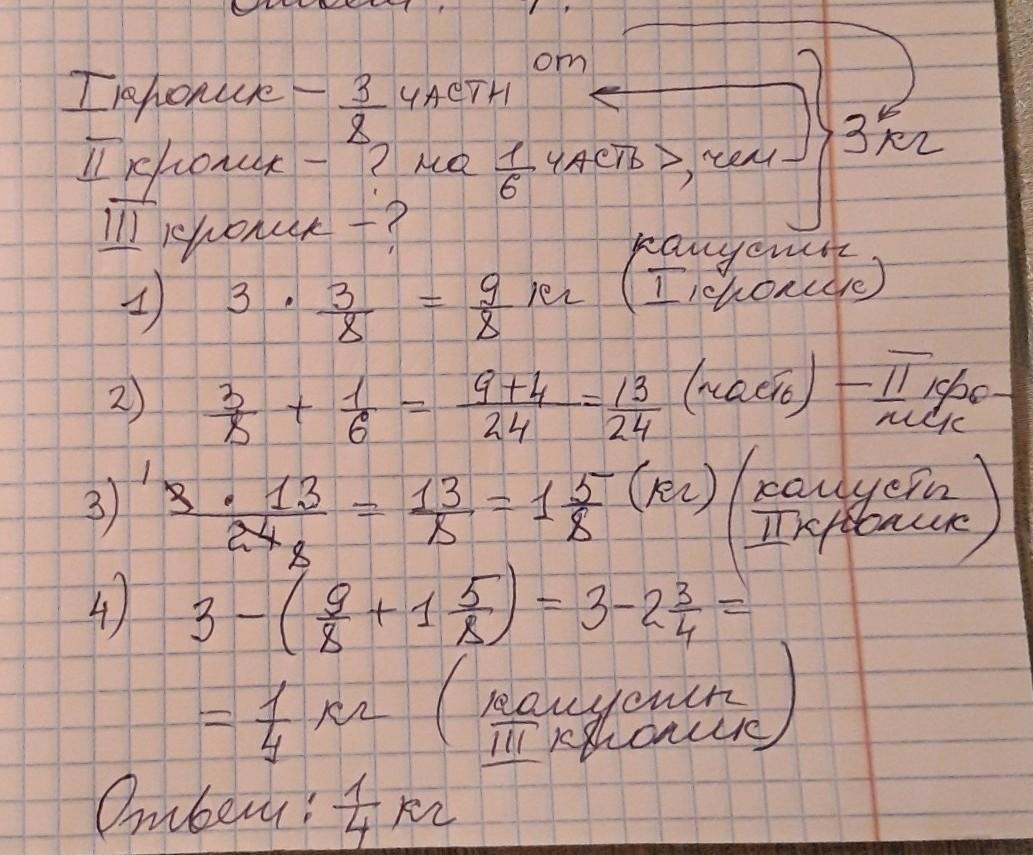 Ответ:
I кролик – 3/8 части от
II кролик – ? на 1/6 часть >, чем
3 кг
III кролик – ?
1) 3 · 3/8 = 9/8 кг (капусты I кролик)
2) 3/8 + 1/6 = 9+4/24 = 13/24 (часть) – II кролик
3) 3 · 13/24 = 13/8 = 1 5/8 (кг) (капусты II кролик)
4) 3 – (9/8 + 1 5/8) = 3 – 2 3/4 =
= 1/4 кг (капусты III кролик)
Ответ: 1/4 кг